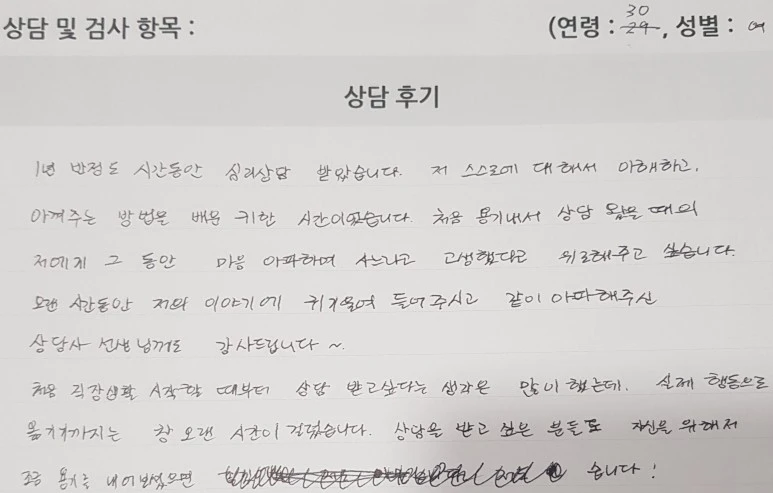 상담 및 검사 항목 : (연령 : 30 29, 성별 : 여
상담 후기
1년 반정도 시간동안 심리상담 받았습니다. 저 스스로에 대해서 이해하고,
아껴주는 방법을 배운 귀한 시간이었습니다. 처음 용기내서 상담 왔을 때의
저에게 그 동안 마음 아파하며 사느라고 고생했다고 위로해주고 싶습니다.
오랜 시간동안 저의 이야기에 귀기울여 들어주시고 같이 아파해주신
상담사 선생님께도 감사드립니다 ~.
처음 직장생활 시작할 때부터 상담 받고싶다는 생각은 많이 했는데. 실제 행동으로
옮기기까지는 참 오랜 시간이 걸렸습니다. 상담을 받고 싶은 분들도 자신을 위해서
조금 용기를 내어보셨으면 습니다!